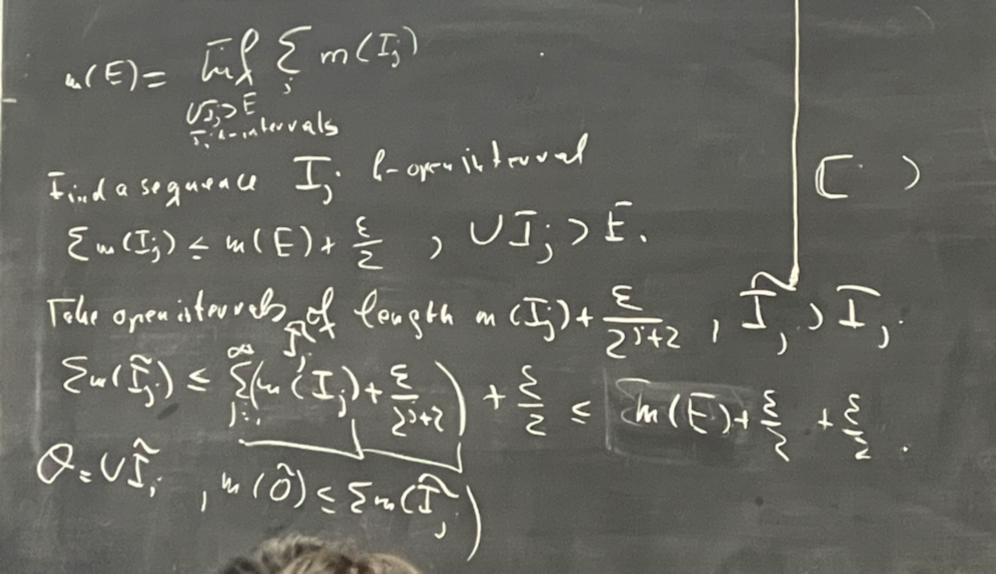 m(E) = Inf Σ_j m(I_j)
∪I_j ⊃ E
I_j h-intervals
Find a sequence I_j h-open interval
Σ m(I_j) ≤ m(E) + ε/2 , ∪I_j ⊃ E.
[ )
Take open intervals Ĩ_j of length m(I_j) + ε/2^{j+2} , Ĩ_j ⊃ I_j.
Σ m(Ĩ_j) ≤ Σ_{j=1}^∞ (m(I_j) + ε/2^{j+2}) + ε/2 ≤ m(E) + ε/2 + ε/2 .
O = ∪Ĩ_j , m(Õ) ≤ Σ m(Ĩ_j)